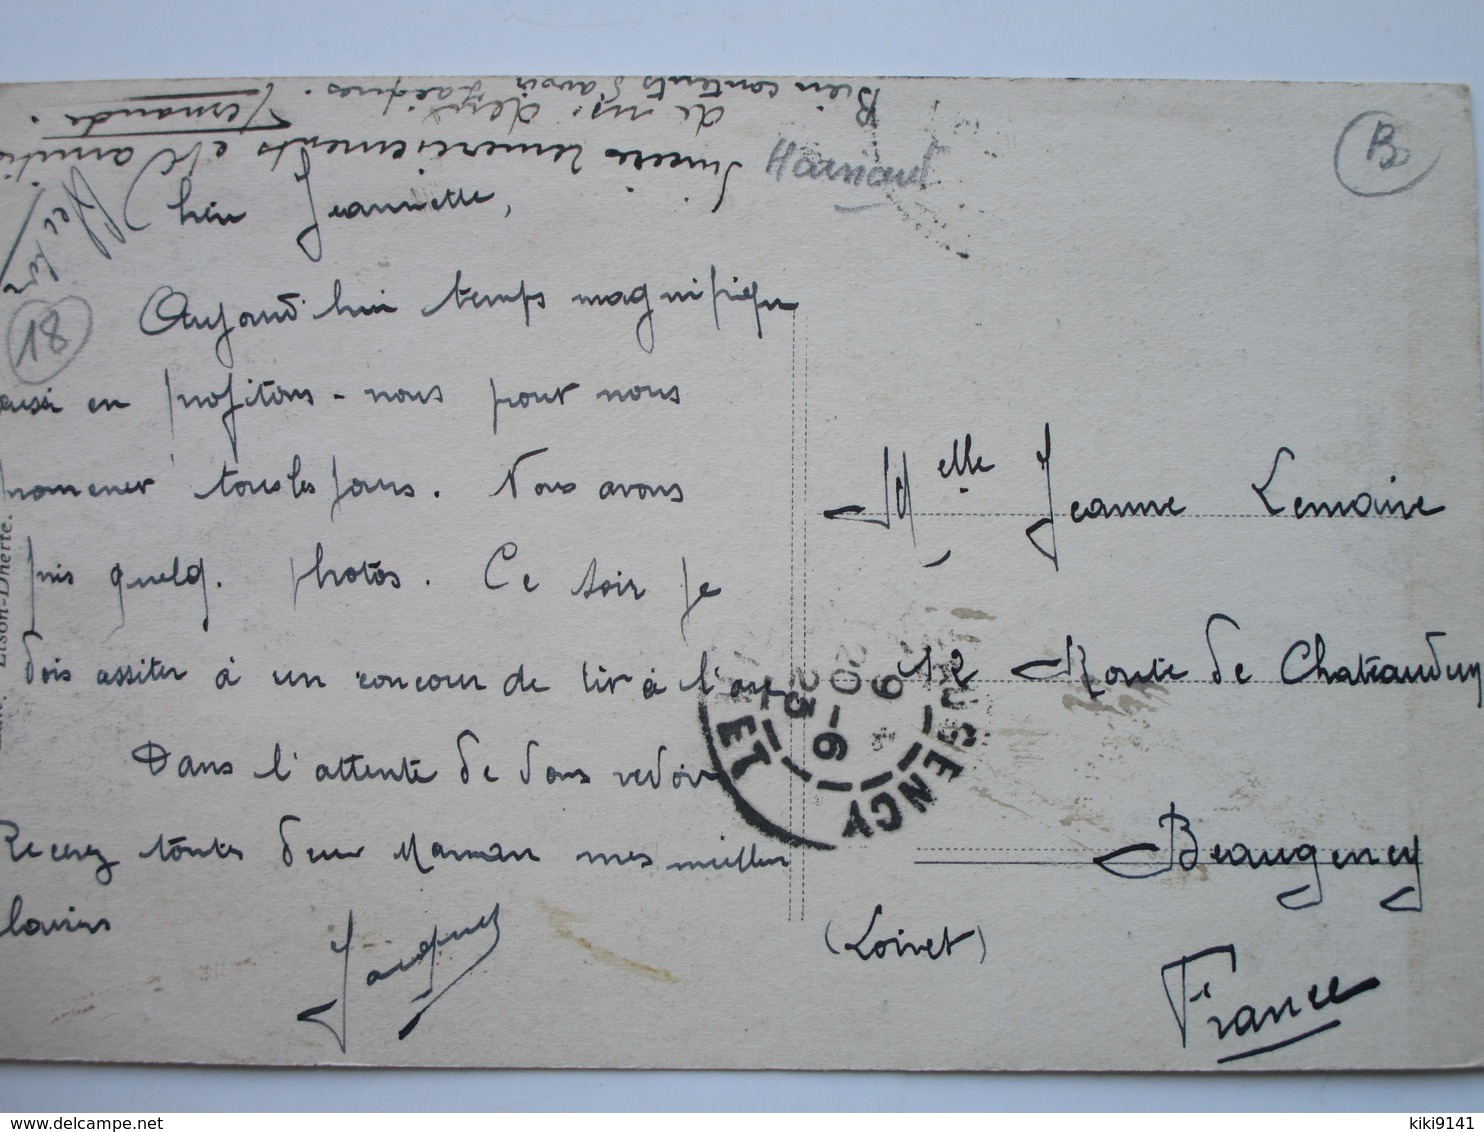 Bien contents d'avoir
de vs. Jacques.
Sincères remerciements et amitiés
Fernande.
Hainaut
B
18
Chère Jeannette,
Aujourd'hui temps magnifique
aussi en profitons-nous pour nous
promener tous les jours. Nous avons
pris quelq. photos. Ce soir je
dois assiter à un concour de tir à l'arc
Dans l'attente de vous revoir
Recevez toutes deux Maman mes meilleurs
Jacques
Melle Jeanne Lemaire
12 Route de Chateaudun
Beaugency
(Loiret)
France
BEAUGENCY
LOIRET
9
20-6
23
Lison-Dherte.
delcampe.net
kiki9141